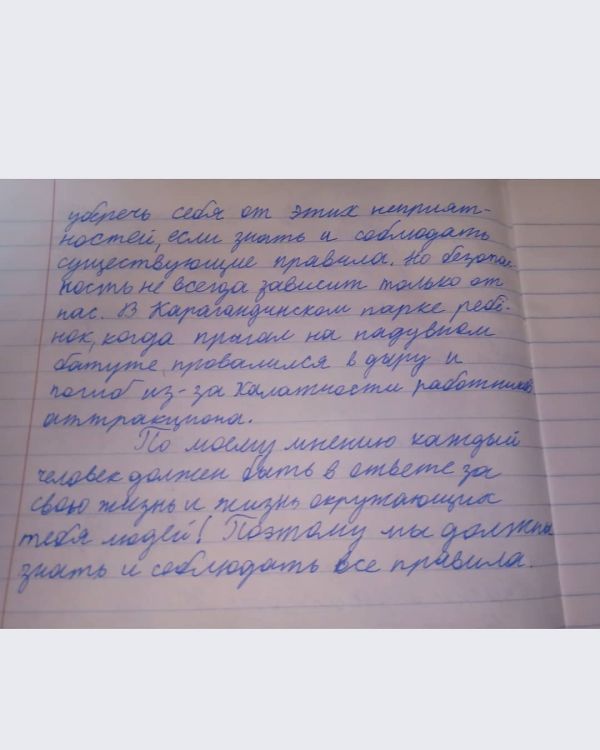 уберечь себя от этих неприят-
ностей, если знать и соблюдать
существующие правила. Но безопас-
ность не всегда зависит только от
нас. В Карагандинском парке ребё-
нок, когда прыгал на надувном
батуте, провалился в дыру и
погиб из-за халатности работников
аттракциона.
По моему мнению каждый
человек должен быть в ответе за
свою жизнь и жизнь окружающих
тебя людей! Поэтому мы должны
знать и соблюдать все правила.